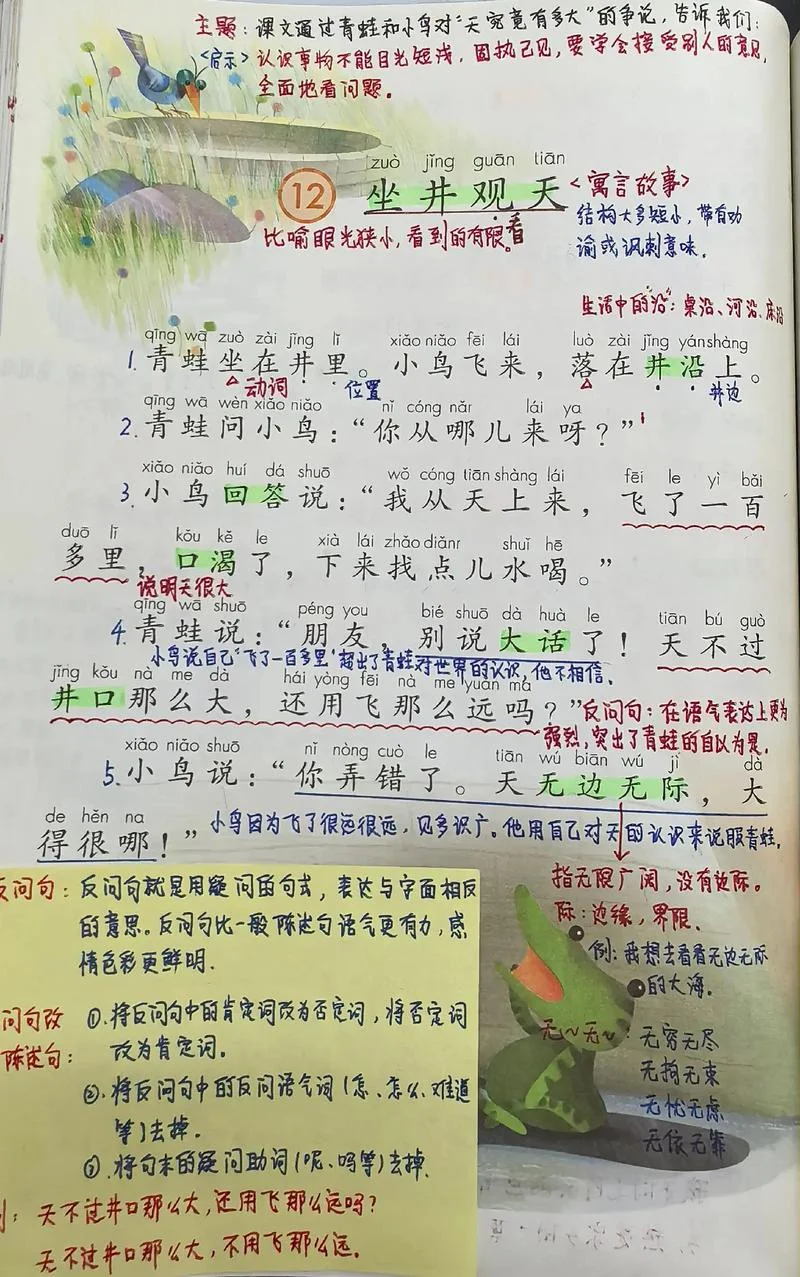 主题：课文通过青蛙和小鸟对“天究竟有多大”的争论，告诉我们：
<启示>认识事物不能目光短浅，固执己见，要学会接受别人的意见，
全面地看问题。
zuò jǐng guān tiān
12 坐井观天 <寓言故事>
看
比喻眼光狭小，看到的有限。
结构大多短小，带有劝
谕或讽刺意味。
生活中的“沿”：桌沿、河沿、床沿
qīng wā zuò zài jǐng lǐ xiǎo niǎo fēi lái luò zài jǐng yán shàng
1. 青蛙坐在井里。小鸟飞来，落在井沿上。
动词 位置 井边
qīng wā wèn xiǎo niǎo nǐ cóng nǎr lái ya
2. 青蛙问小鸟：“你从哪儿来呀？”
xiǎo niǎo huí dá shuō wǒ cóng tiān shàng lái fēi le yì bǎi
3. 小鸟回答说：“我从天上来，飞了一百
duō lǐ kǒu kě le xià lái zhǎo diǎnr shuǐ hē
多里，口渴了，下来找点儿水喝。”
说明天很大
qīng wā shuō péng you bié shuō dà huà le tiān bú guò
4. 青蛙说：“朋友，别说大话了！天不过
小鸟说自己“飞了一百多里”超出了青蛙对世界的认识，他不相信。
jǐng kǒu nà me dà hái yòng fēi nà me yuǎn ma
井口那么大，还用飞那么远吗？”反问句：在语气表达上更为
强烈，突出了青蛙的自以为是。
xiǎo niǎo shuō nǐ nòng cuò le tiān wú biān wú jì dà
5. 小鸟说：“你弄错了。天无边无际，大
de hěn na
得很哪！”小鸟因为飞了很远很远，见多识广。他用自己对天的认识来说服青蛙。
指无限广阔，没有边际。
际：边缘，界限。
例：我想去看看无边无际
的大海。
无~无~：无穷无尽
无拘无束
无忧无虑
无依无靠
反问句：反问句就是用疑问的句式，表达与字面相反
的意思。反问句比一般陈述句语气更有力，感
情色彩更鲜明.
问句改
陈述句：
①.将反问句中的肯定词改为否定词，将否定词
改为肯定词。
②.将反问句中的反问语气词（怎、怎么、难道
等）去掉.
③.将句末的疑问助词（呢、吗等）去掉.
天不过井口那么大，还用飞那么远吗？
天不过井口那么大，不用飞那么远。